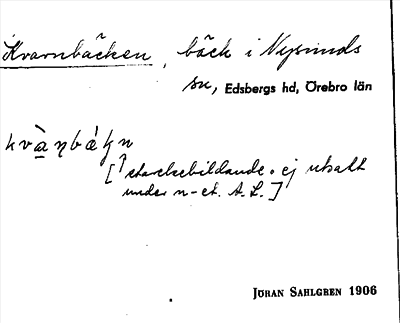 Kvarnbäcken, bäck i Nysunds
sn, Edsbergs hd, Örebro län
kvà̱ṇbákn
[? stavelsebildande. ej utsatt
under n-et. A. L.]
JÖRAN SAHLGREN 1906